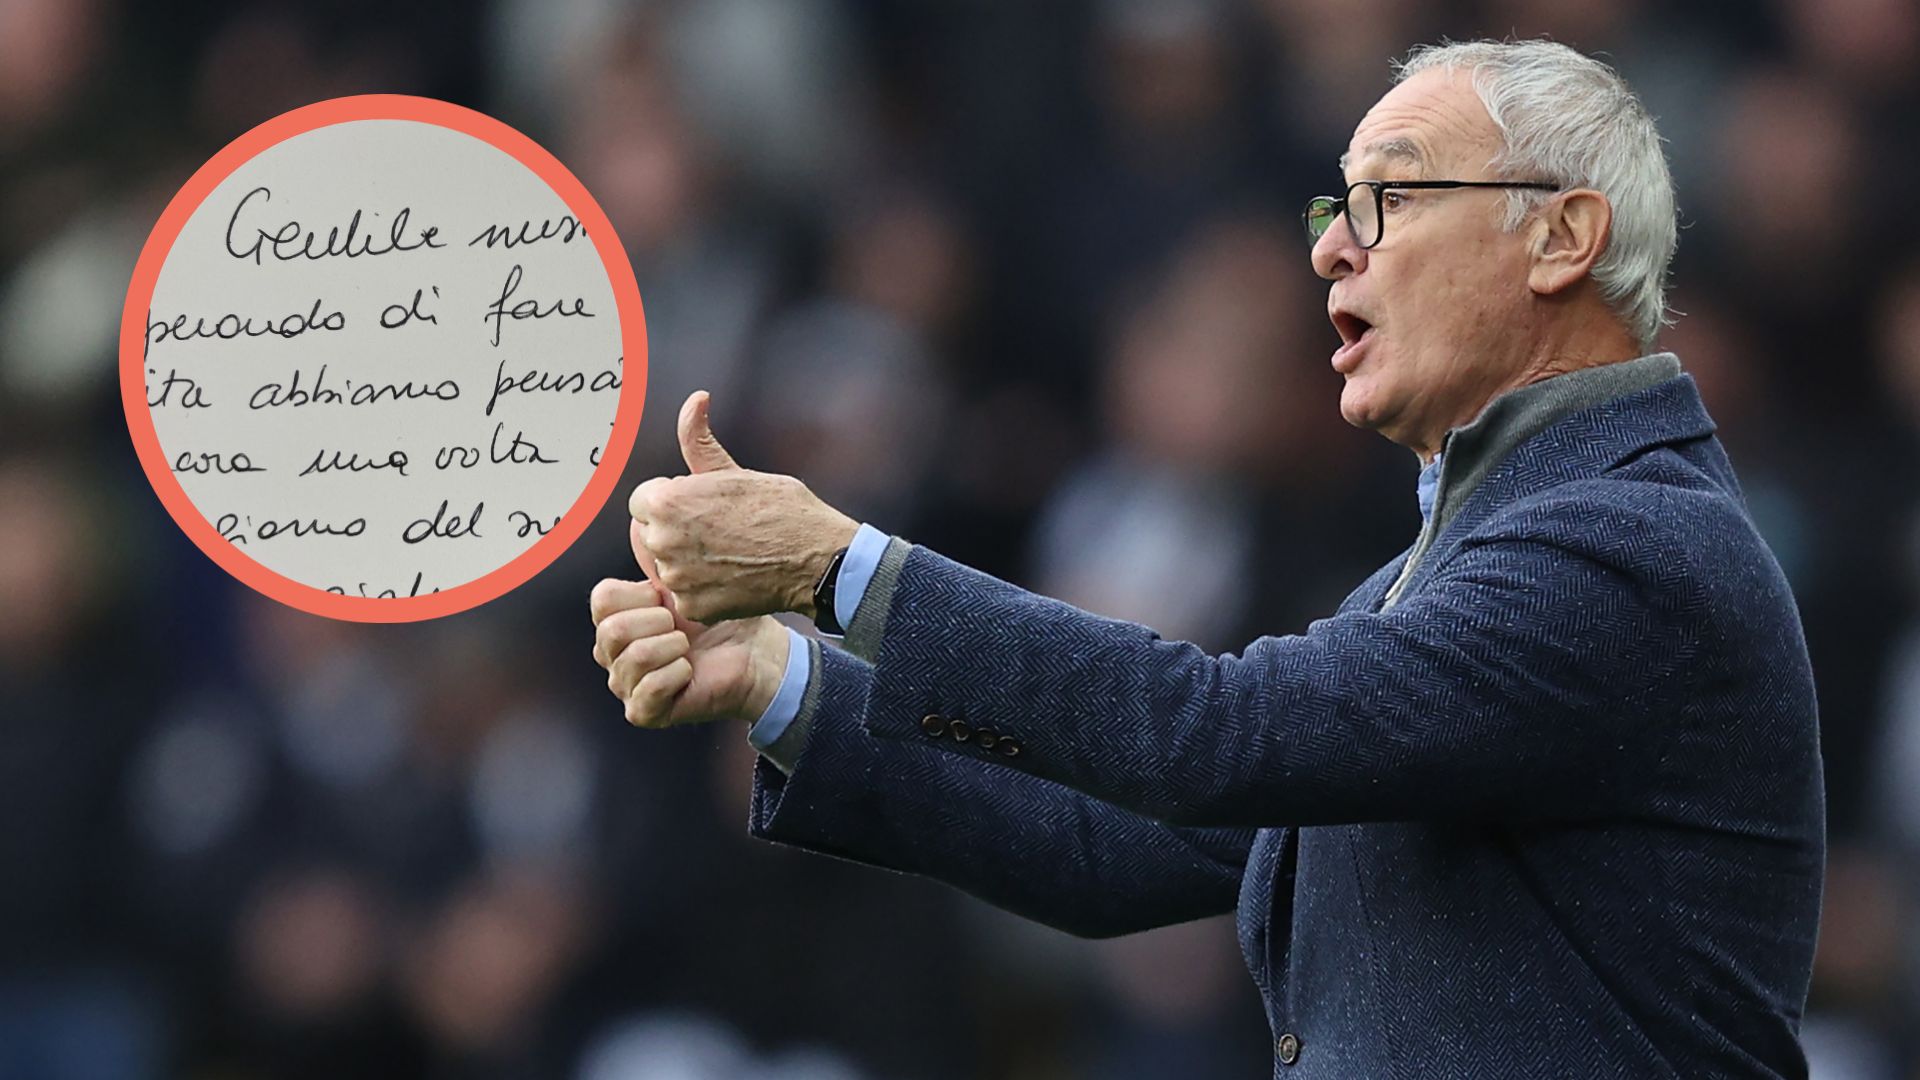 Gentile
perando di fare
ita abbiamo pensa
cora una volta
giorno del